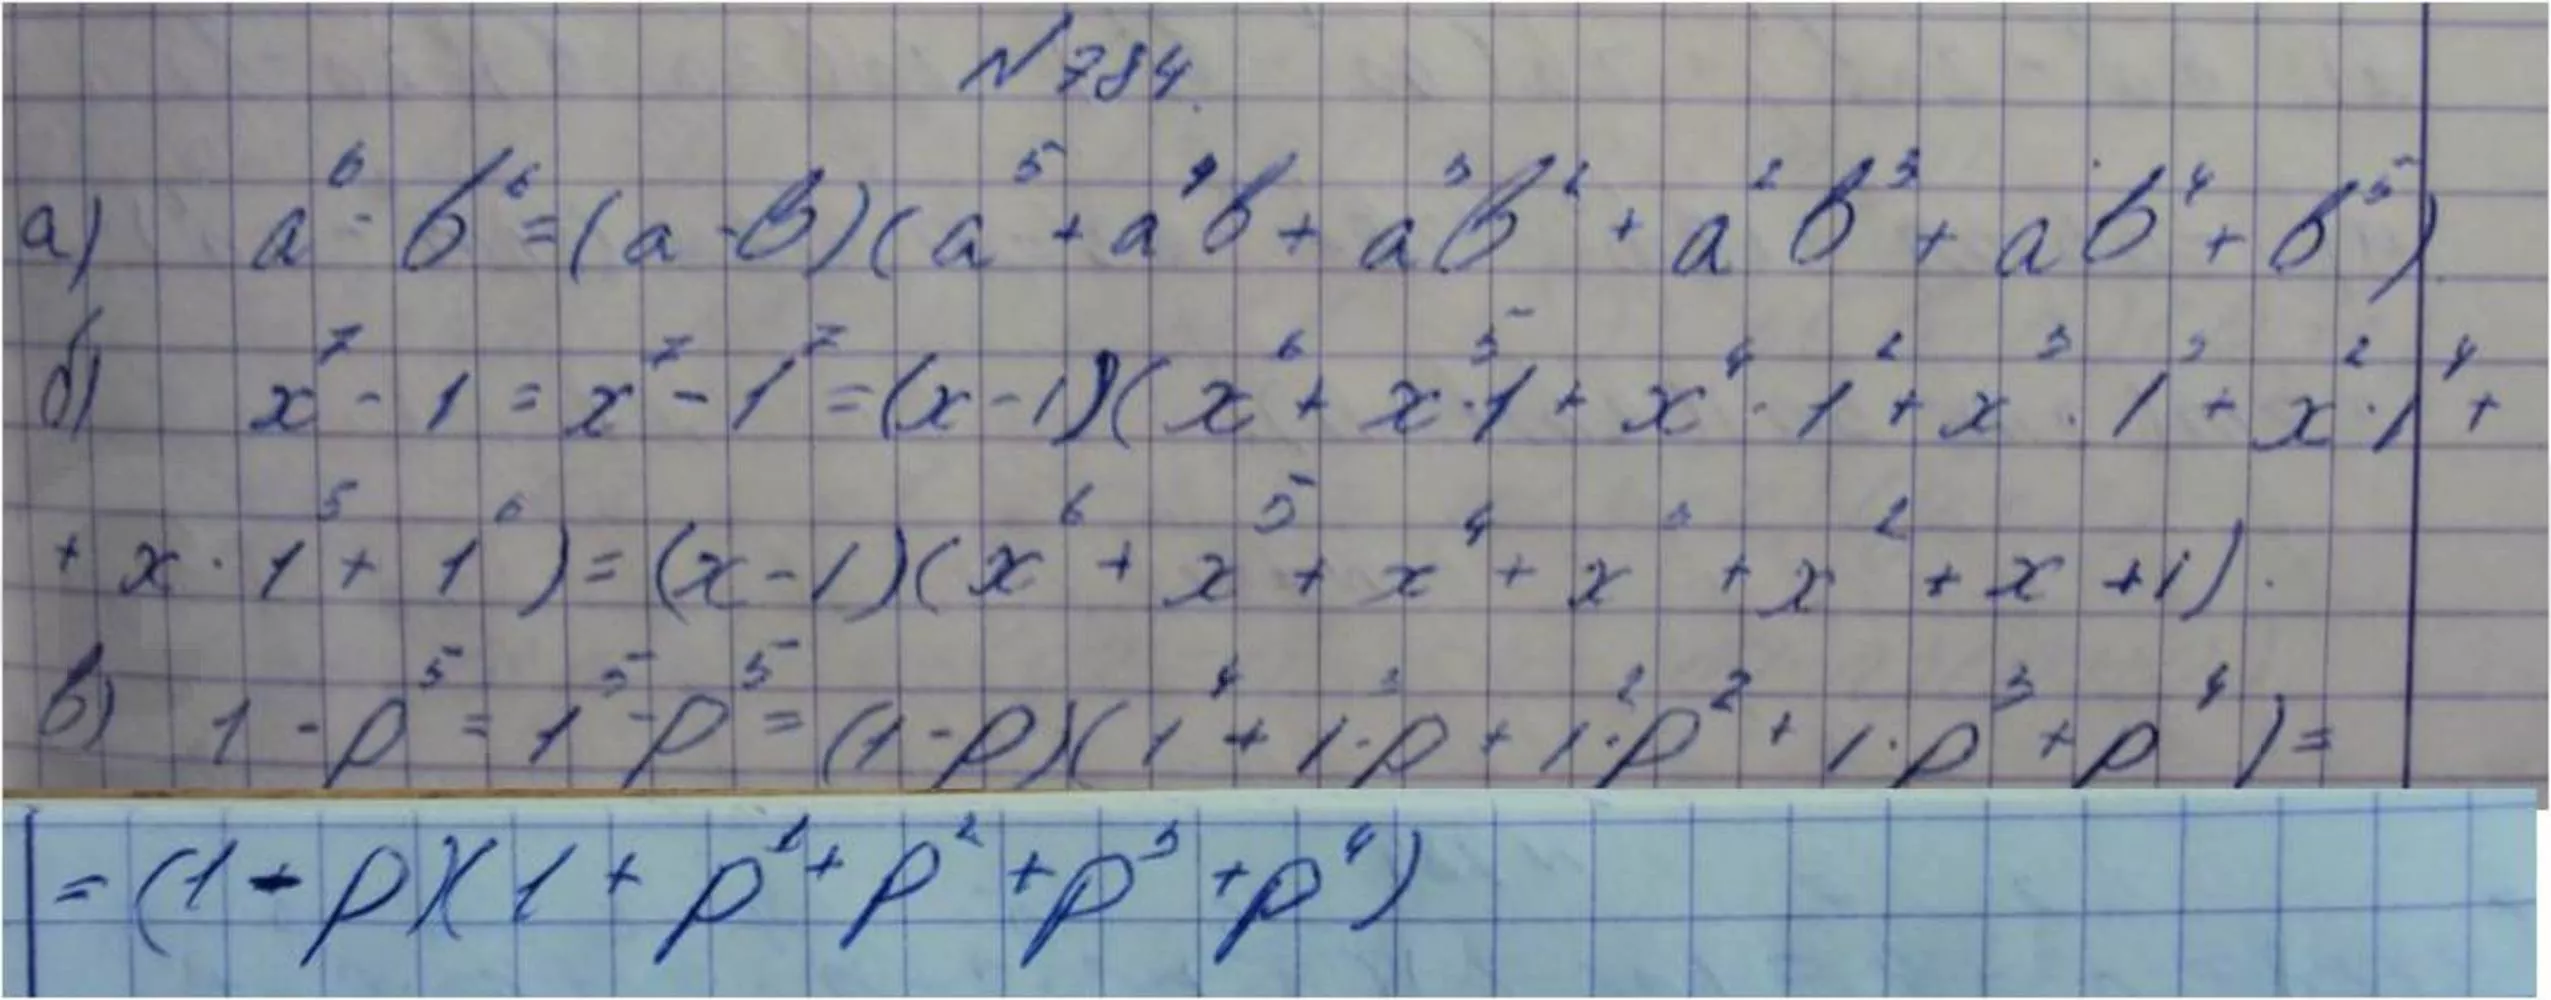 №784.
а) a⁶ - b⁶ = (a - b)(a⁵ + a⁴b + a³b² + a²b³ + ab⁴ + b⁵)
б) x⁷ - 1 = x⁷ - 1⁷ = (x - 1)(x⁶ + x⁵·1 + x⁴·1² + x³·1³ + x²·1⁴ +
+ x·1⁵ + 1⁶) = (x - 1)(x⁶ + x⁵ + x⁴ + x³ + x² + x + 1).
в) 1 - p⁵ = 1⁵ - p⁵ = (1 - p)(1⁴ + 1³·p + 1²·p² + 1·p³ + p⁴) =
= (1 - p)(1 + p¹ + p² + p³ + p⁴)